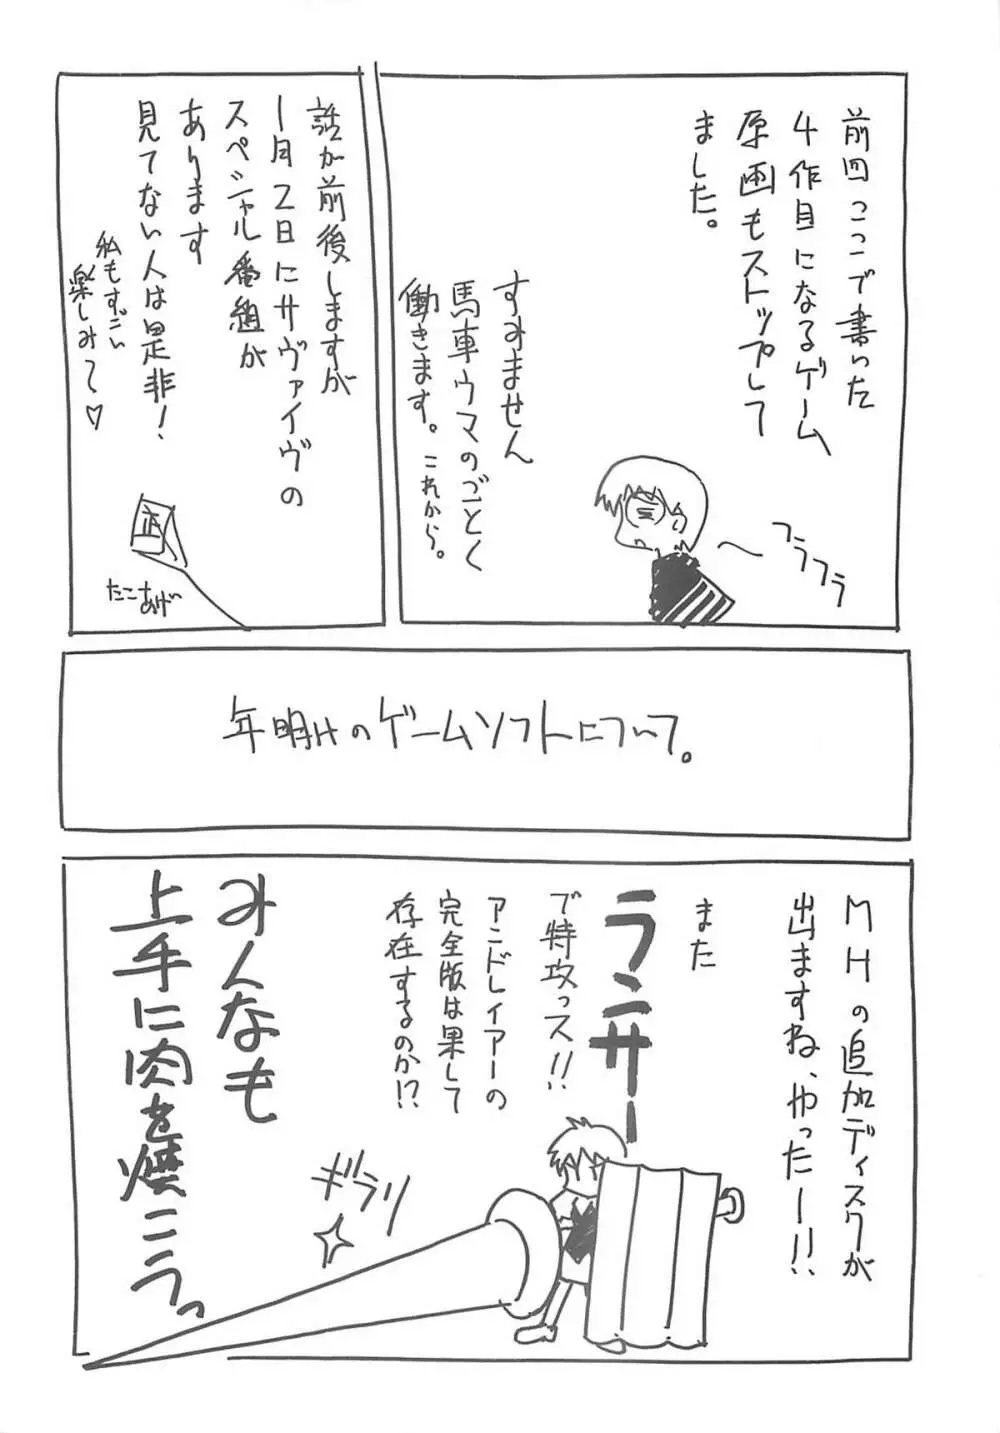 前回ここで書いた
4作目になるゲーム
原画もストップして
ました。
すみません
馬車ウマのごとく
働きます。これから。
フラフラ
話が前後しますが
1月2日にサヴァイヴの
スペシャル番組が
あります
見てない人は是非!
私もすごい
楽しみ〜♡
正
たこあげ
年明けのゲームソフトについて。
MHの追加ディスクが
出ますね、やったー!!
また
ランサー
で特攻っス!!
アンドレイアーの
完全版は果して
存在するのか!?
ギラリ
みんなも
上手に肉を焼こうっ